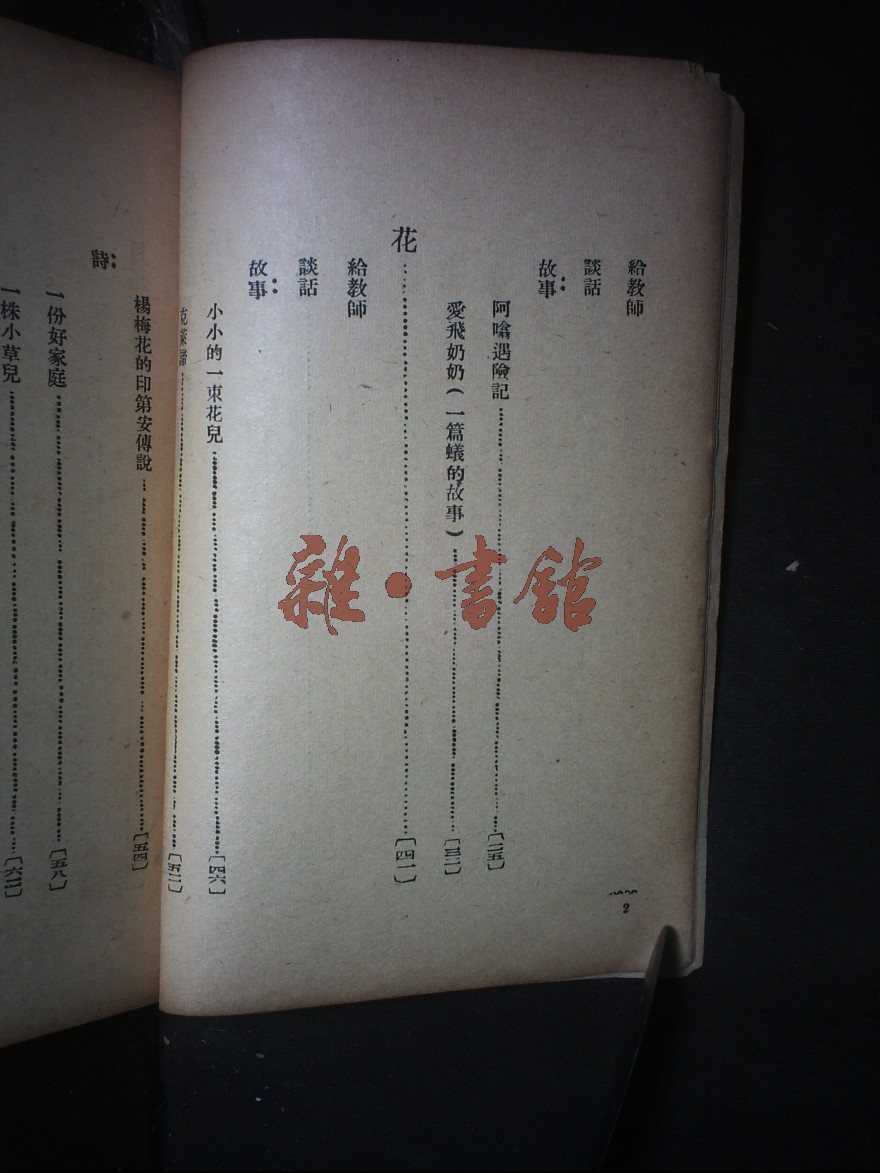 給教師
談話
故事：
阿噏遇險記〔二五〕
愛飛奶奶(一篇蟻的故事)〔三二〕
花〔四一〕
給教師
談話
故事：
小小的一束花兒〔四六〕
克萊諦〔五二〕
楊梅花的印第安傳說〔五四〕
詩：
一份好家庭〔五八〕
一株小草兒〔六二〕
2
雜•書館